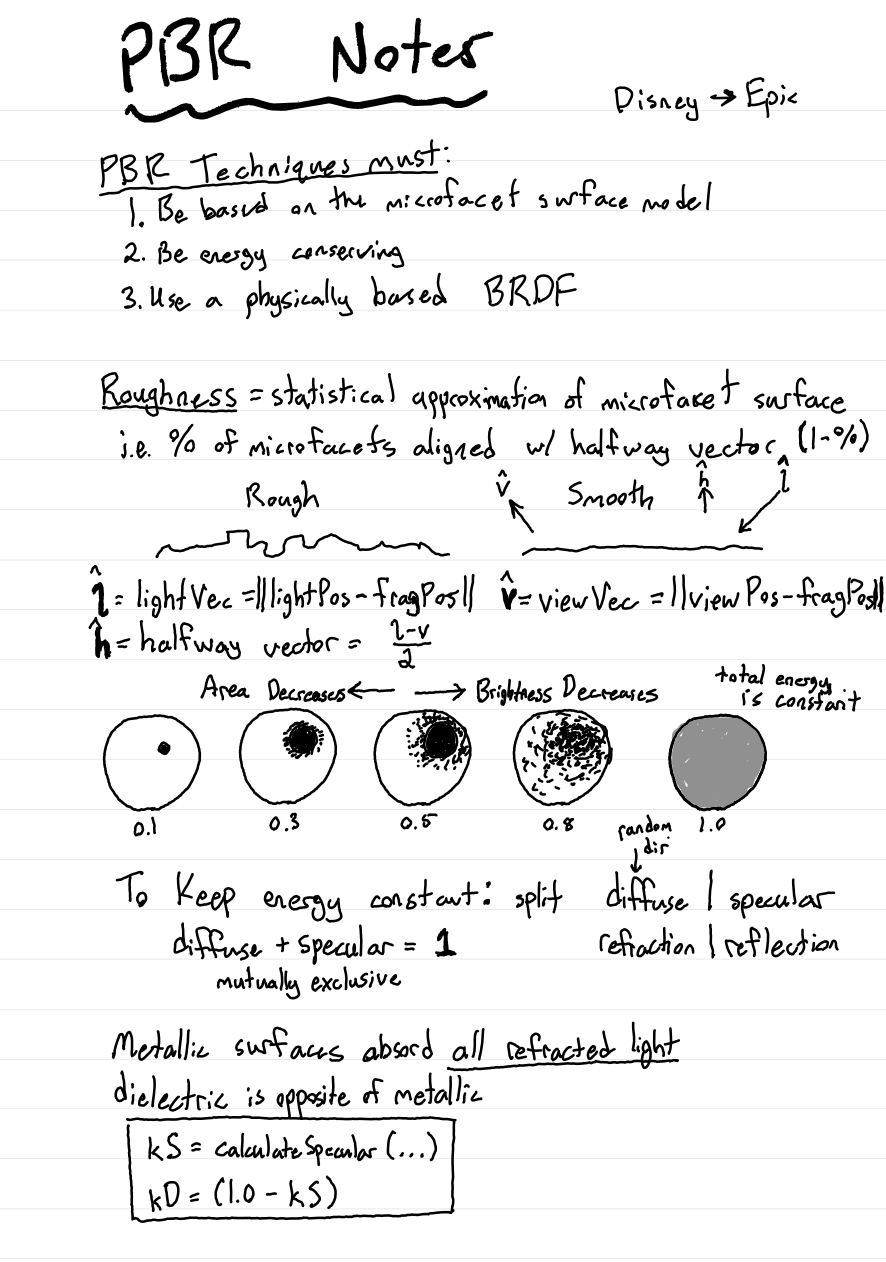 PBR Notes
Disney → Epic
PBR Techniques must:
1. Be based on the microfacet surface model
2. Be energy conserving
3. Use a physically based BRDF
Roughness = statistical approximation of microfacet surface
i.e. % of microfacets aligned w/ halfway vector (1-%)
Rough
Smooth
v̂
ĥ
l̂
l̂ = lightVec = ||lightPos - fragPos||
v̂ = viewVec = ||viewPos - fragPos||
ĥ = halfway vector = (l-v)/2
Area Decreases ← → Brightness Decreases
total energy
is constant
0.1 0.3 0.5 0.8 1.0
random
dir
To Keep energy constant: split diffuse | specular
diffuse + specular = 1
refraction | reflection
mutually exclusive
Metallic surfaces absord all refracted light
dielectric is opposite of metallic
kS = calculateSpecular (...)
kD = (1.0 - kS)